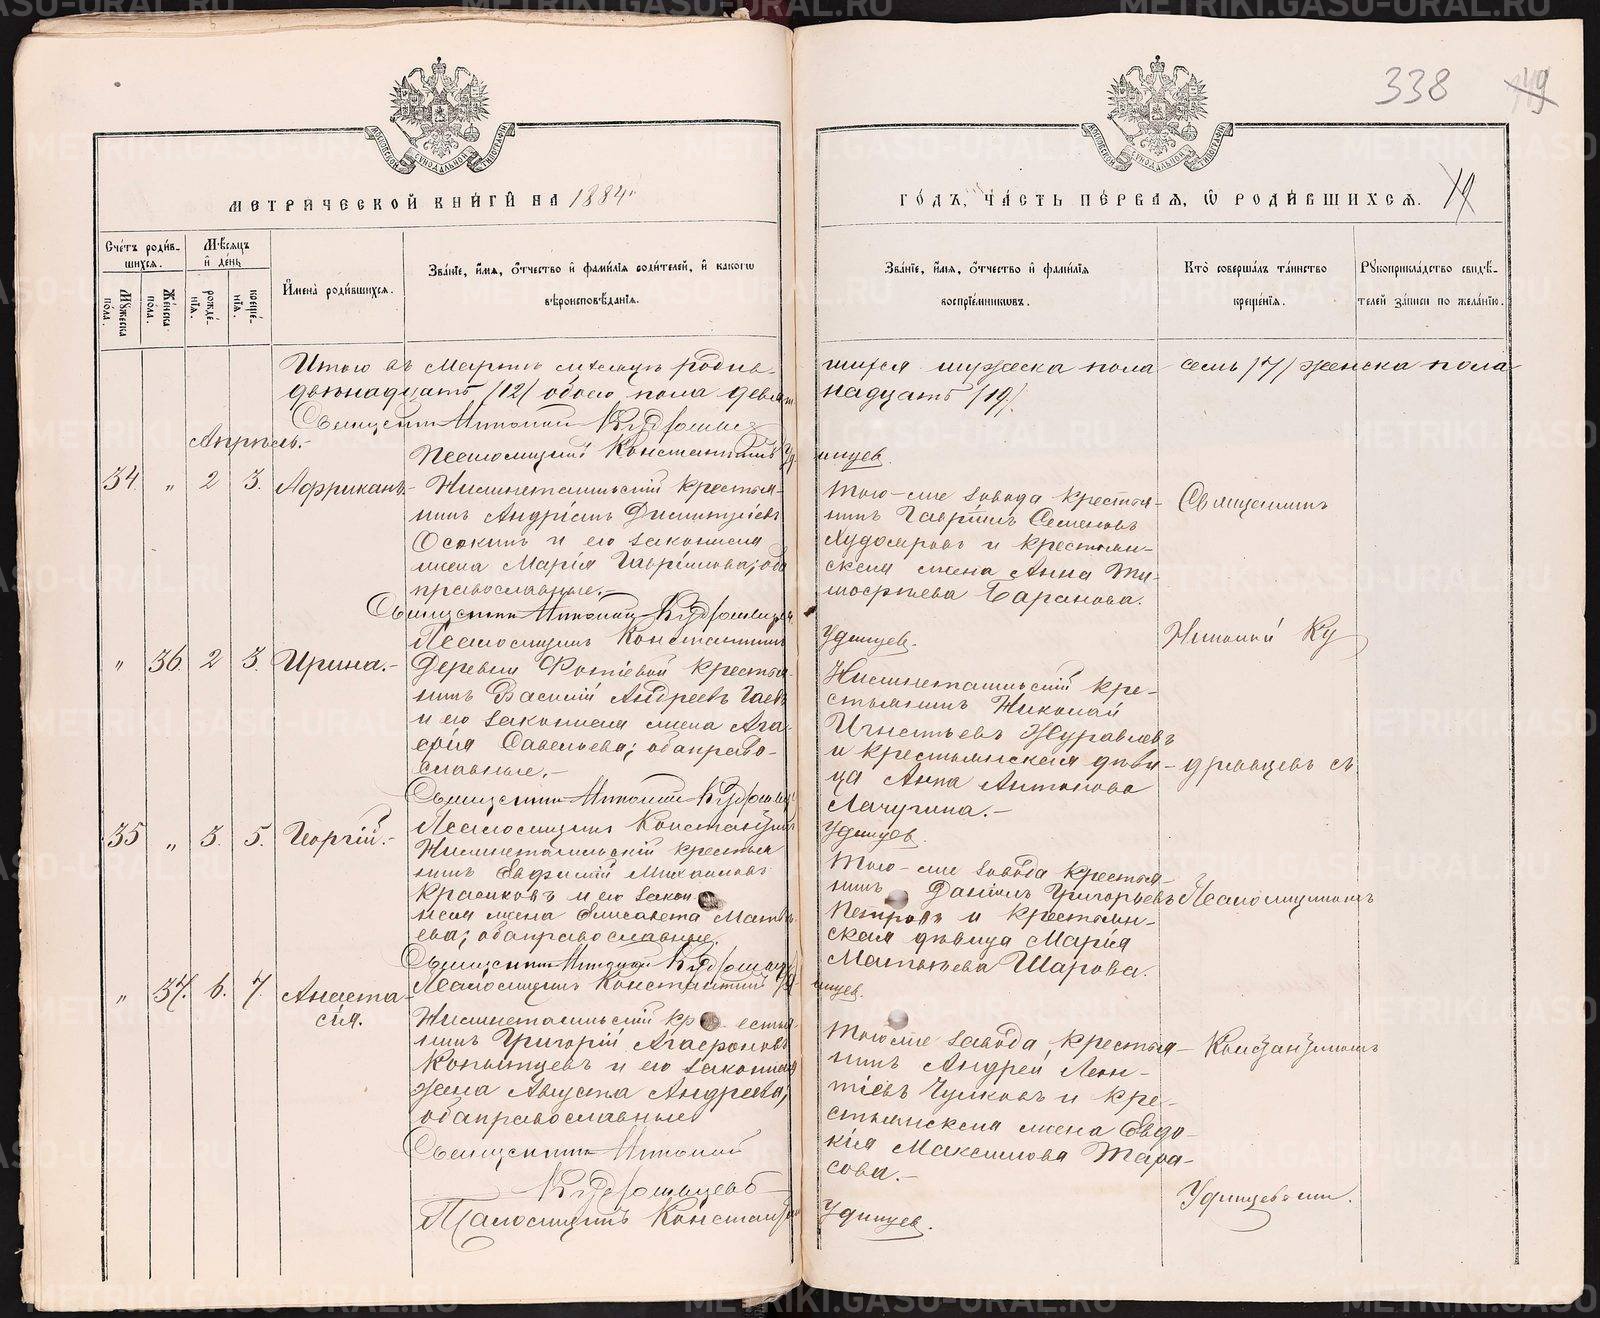 338
МЕТРИ́ЧЕСКОЙ КНИ́ГИ НА 1884
ГО́ДЪ, ЧА́СТЬ ПЕ́РВАЯ, Ѿ РОДИ́ВШИХСЯ.
19
МОСКОВСКОЙ СѴНОДАЛЬНОЙ ТИПОГРАФІИ
МОСКОВСКОЙ СѴНОДАЛЬНОЙ ТИПОГРАФІИ
Сче́тъ роди́в-
шихся.
Му́жеска по́ла.
Же́нска по́ла.
Мѣ́сяцъ
и҆ де́нь
рожде́-
нїѧ.
креще́-
нїѧ.
И҆мена̀ роди́вшихся.
Зва́нїе, и҆́мя, ѻ҆́тчество и҆ фами́лїя роди́телей, и҆ како́гѡ
вѣроисповѣ́данїя.
Зва́нїе, и҆́мя, ѻ҆́тчество и҆ фами́лїя
воспрїе́мниковъ.
Кто̀ соверша́лъ та́инство
креще́нїя.
Рꙋкоприкла́дство свидѣ́-
телей за́писи по жела́нїю.
Итого въ Мартѣ мѣсяцѣ родив-
шихся мужеска пола семь /7/ женска пола
двѣнадцать /12/ обоего пола девят-
надцать /19/.
Священникъ Николай Кудрявцевъ
Псаломщикъ Константинъ Удинцев.
Апрѣль.
34. " 2 3. Африканъ.-
Нижнетагильскій крестья-
нинъ Андріанъ Дементьевъ
Осокинъ и его законная
жена Марія Гаврилова; оба
православные.-
Того-же завода крестья-
нинъ Гавріилъ Семеновъ
Худояровъ и крестьян-
ская жена Анна Ти-
мофеева Баранова.
Священникъ
Священникъ Николай Кудрявцевъ
Псаломщикъ Константинъ Удинцев.
Николай Ку
" 36. 2 3. Ирина.-
Деревни Фотѣевой крестья-
нинъ Василій Андреевъ Гаевъ
и его законная жена Ага-
фія Савельева; оба право-
славные.-
Нижнетагильскій кре-
стьянинъ Николай
Игнатьевъ Журавлевъ
и крестьянская дѣви-
ца Анна Антонова
Лачугина.-
дрявцевъ съ
Священникъ Николай Кудрявцевъ
Псаломщикъ Константинъ Удинцев.
35 " 3. 5. Георгій.-
Нижнетагильскій крестья
нинъ Евфимій Михаиловъ
Красиковъ и его закон
ная жена Елисавета Матвѣ-
ева; оба православные.
Того-же завода крестья-
нинъ Даніилъ Григорьевъ
Петровъ и крестьян-
ская дѣвица Марія
Матвѣева Шарова.
Псаломщикомъ
Священникъ Николай Кудрявцевъ
Псаломщикъ Константинъ Удинцев.
" 37. 6. 7. Анаста-
сія.
Нижнетагильскій крестья-
нинъ Григорій Агафоновъ
Копытцевъ и его законная
жена Августа Андреева;
оба православные
Того же завода крестья-
нинъ Андрей Леон-
тіевъ Чулковъ и кре-
стьянская жена Евдо-
кія Максимова Тара-
сова.-
Константиномъ
Священникъ Николай
Кудрявцевъ
Псаломщикъ Константинъ Удинцев.
Удинцевымъ.
METRIKI.GASO-URAL.RU